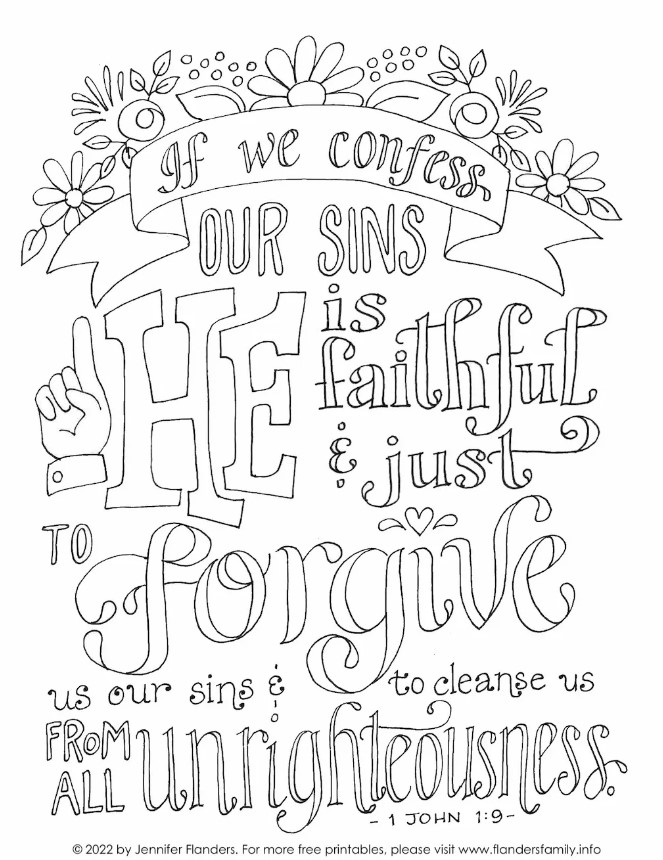 If we confess
OUR SINS
HE is
faithful
& just
TO forgive
us our sins & to cleanse us
FROM ALL unrighteousness.
- 1 JOHN 1:9 -
© 2022 by Jennifer Flanders. For more free printables, please visit www.flandersfamily.info